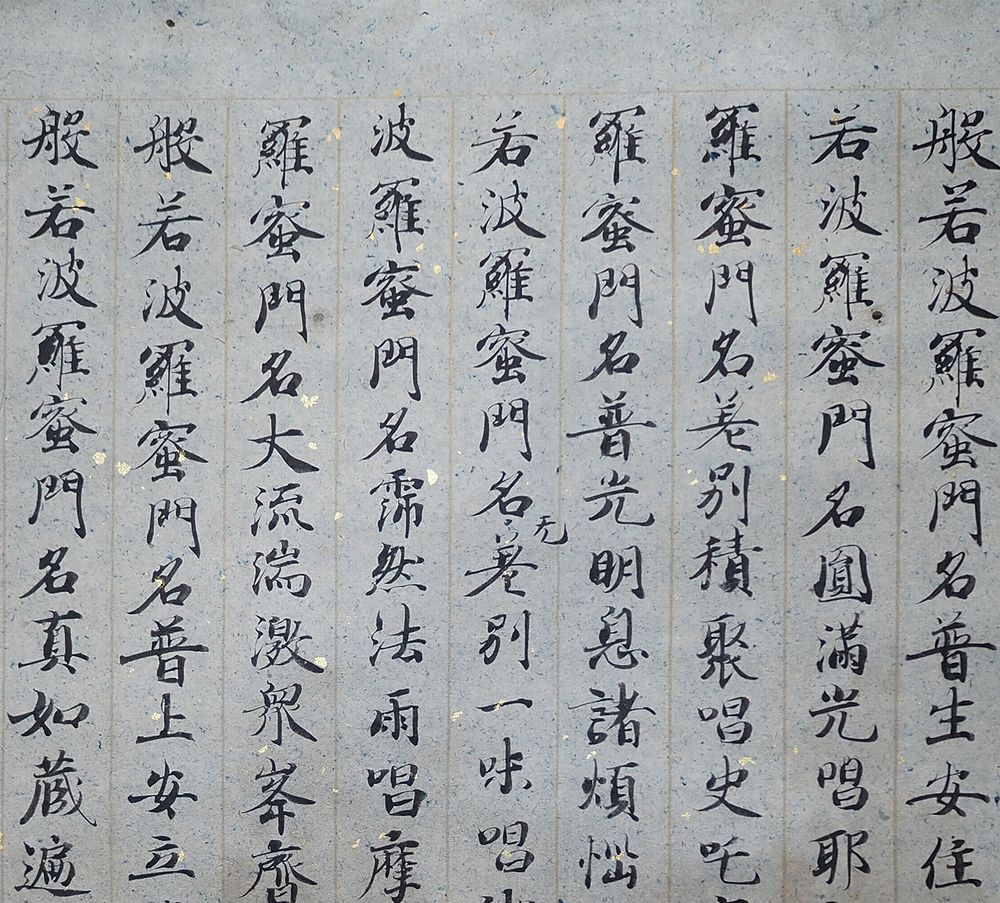 般若波羅蜜門名普生安住
若波羅蜜門名圓滿光唱耶
羅蜜門名差別積聚唱史吒
羅蜜門名普光明息諸煩惱
若波羅蜜門名无差別一味唱
波羅蜜門名霈然法雨唱摩
羅蜜門名大流湍激衆峯齊
般若波羅蜜門名普上安立
般若波羅蜜門名真如藏遍